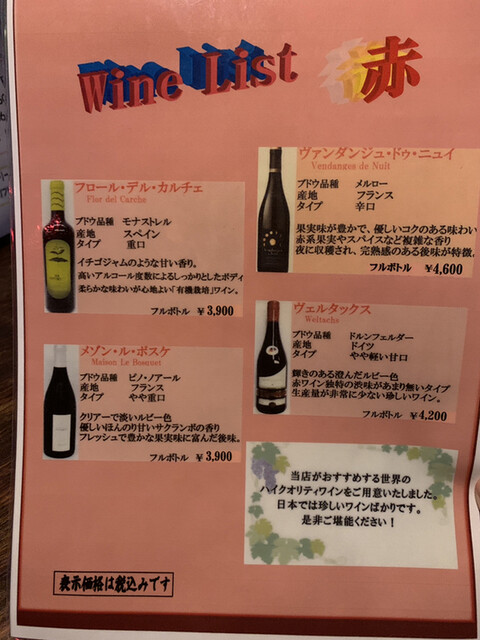 Wine List 赤
フロール・デル・カルチェ
Flor del Carche
ブドウ品種 モナストレル
産地 スペイン
タイプ 重口
イチゴジャムのような甘い香り。
高いアルコール度数によるしっかりとしたボディ
柔らかな味わいが心地よい「有機栽培」ワイン。
フルボトル ￥3,900
メゾン・ル・ボスケ
Maison Le Bosquet
ブドウ品種 ピノ・ノアール
産地 フランス
タイプ やや重口
クリアーで淡いルビー色
優しいほんのり甘いサクランボの香り
フレッシュで豊かな果実味に富んだ後味。
フルボトル ￥3,900
ヴァンダンジュ・ドゥ・ニュイ
Vendanges de Nuit
ブドウ品種 メルロー
産地 フランス
タイプ 辛口
果実味が豊かで、優しいコクのある味わい
赤系果実やスパイスなど複雑な香り。
夜に収穫され、完熟感のある後味が特徴。
フルボトル ￥4,600
ヴェルタックス
Weltachs
ブドウ品種 ドルンフェルダー
産地 ドイツ
タイプ やや軽い甘口
輝きのある澄んだルビー色
赤ワイン独特の渋味があまり無いタイプ
生産量が非常に少ない珍しいワイン。
フルボトル ￥4,200
当店がおすすめする世界の
ハイクオリティワインをご用意いたしました。
日本では珍しいワインばかりです。
是非ご堪能ください！
表示価格は税込みです